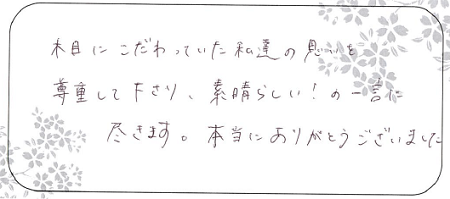 木目にこだわっていた私達の思いを
尊重して下さり、素晴らしい!の一言に
尽きます。本当にありがとうございました